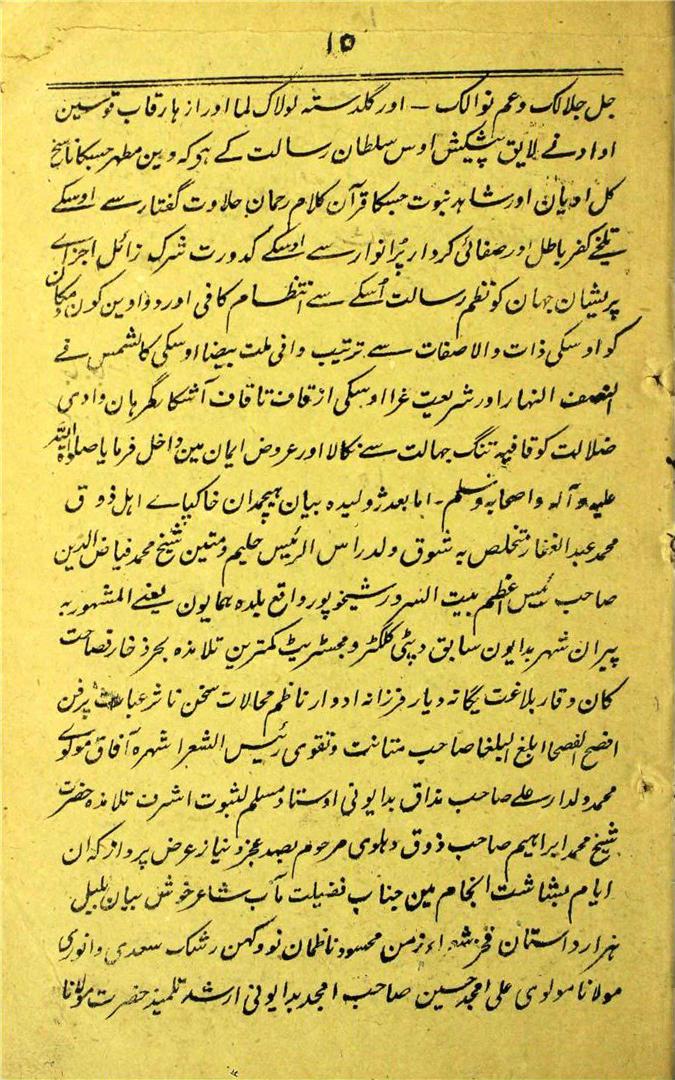 ۱۵
جل جلالک وعم نوالک – اور گلدستہ لولاک لما اور ازہار قاب قوسین
او ادنے لایق پیشکش اوس سلطان رسالت کے ہو کہ دین مطہر جسکا ناسخ
کل ادیان اور شاہد نبوت جسکا قرآن کلام رحمان حلاوت گفتار سے اوسکے
تلخے کفر باطل اور صفائی کردار پُر انوار سے اوسکے کدورت شرک زائل اجزاے
پریشان جہان کو نظم رسالت اُسکے سے انتظام کافی اور دواوین کون و مکان
کو اوسکی ذات والا صفات سے ترتیب وافی ملت بیضا اوسکی کالشمس فے
النصف النہار اور شریعت غرا اوسکی از قاف تا قاف آشکار گمرہان وادی
ضلالت کو قافیہ تنگ جہالت سے نکالا اور عروض ایمان مین داخل فرمایا صلوٰۃ اللہ
علیہ وآلہ واصحابہ وسلم۔ اما بعد ژولیدہ بیان ہیچمدان خاکپاے اہل ذوق
محمد عبد الغفار متخلص بہ شوق ولد راس الرئیس حلیم و متین شیخ محمد فیاض الدین
صاحب رئیس اعظم بیت السرور شیخوپور واقع بلدہ ہمایون یعنے المشہور بہ
پیران شہر بدایون سابق ڈپٹی کلکٹر و مجسٹریٹ کمترین تلامذہ بحر ذخار فصاحت
کان وقار بلاغت یگانہ دیار فرزانہ ادوار ناظم محالات سخن ناثر عبارت پرفن
افصح الفصحا ابلغ البلغا صاحب متانت و تقوی رئیس الشعرا شہرہ آفاق مولوے
محمد ولدار علے صاحب مذاق بدایونی اوستاد مسلم الثبوت اشرف تلامذہ حضرت
شیخ محمد ابراہیم صاحب ذوق دہلوی مرحوم بصد عجز و نیاز عرض پرداز کہ ان
ایام بشاشت انجام مین جناب فضیلت مآب شاعر خوش بیان بلبل
ہزار داستان فخر شعراء زمن محسود ناظمان نو و کہن رشک سعدی و انوری
مولانا مولوی علی امجد حسین صاحب امجد بدایونی ارشد تلمیذ حضرت مولانا